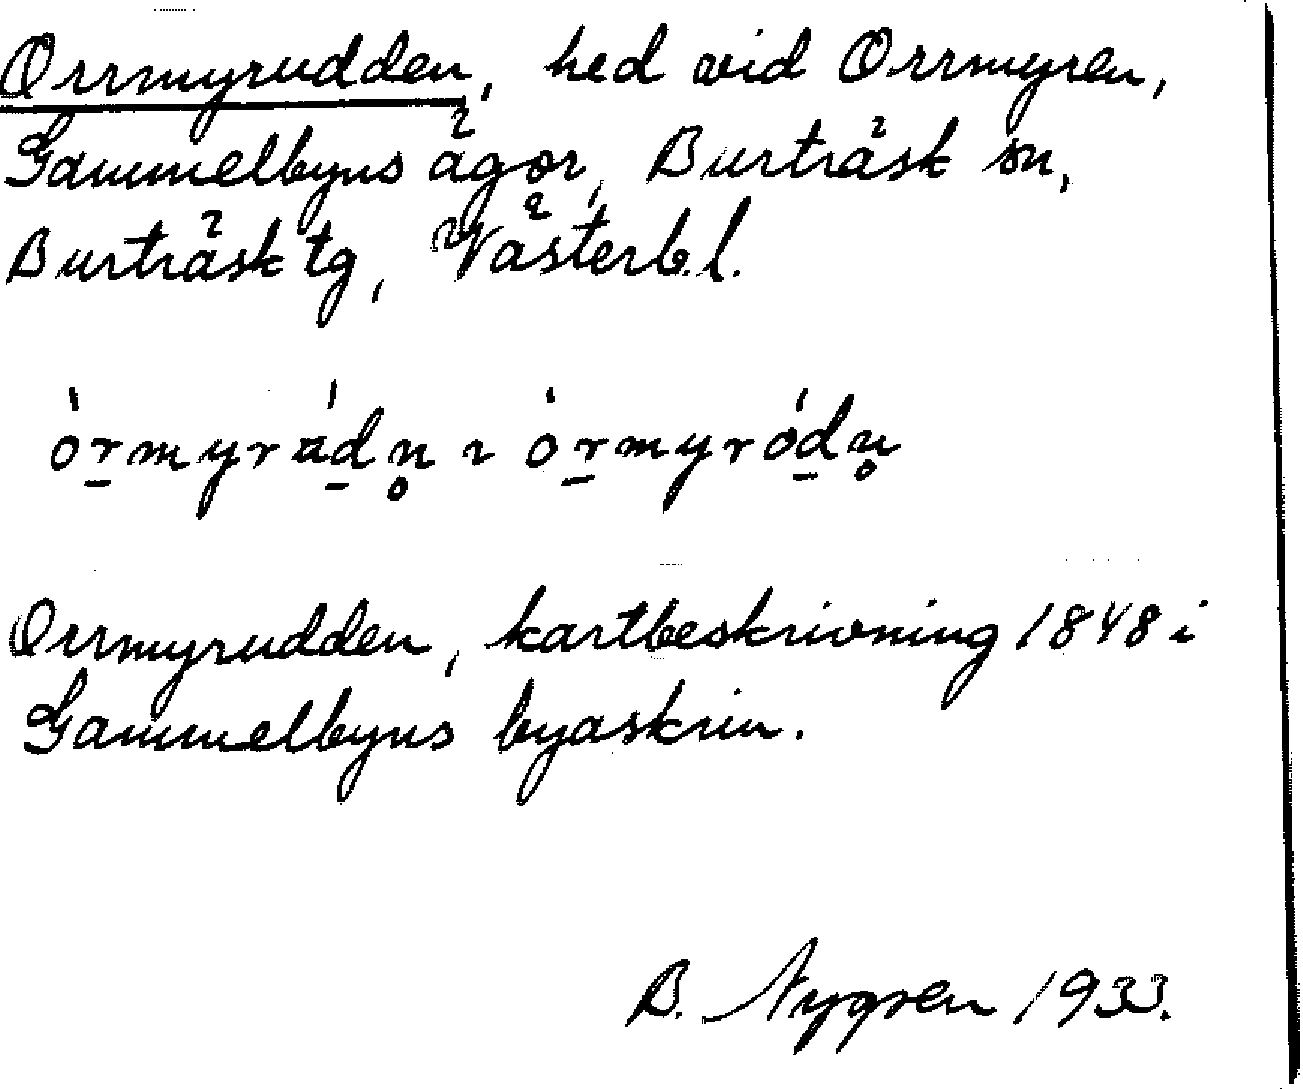 Orrmyrudden, hed vid Orrmyren,
Gammelbyns ägor, Burträsk sn,
Burträsk tg, Västerb. l.
Orrmyrudden, kartbeskrivning 1848 i
Gammelbyns byaskrin.
B. Nygren 1933.